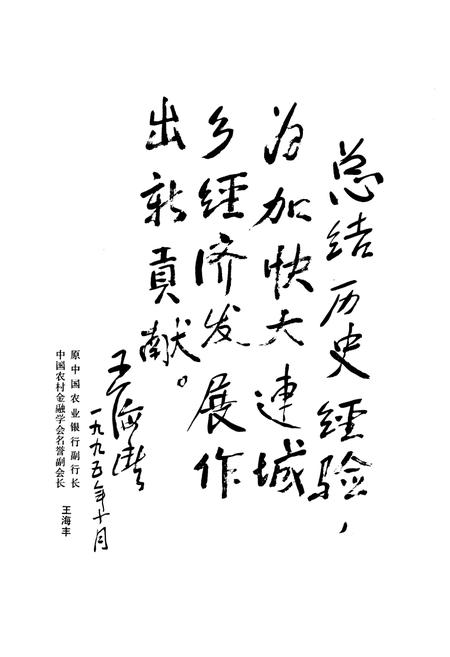 总结历史经验，
为加快大連城
乡經济发展作
出新貢献。
王海丰
一九九五年十月
原中国农业银行副行长
中国农村金融学会名誉副会长
王海丰